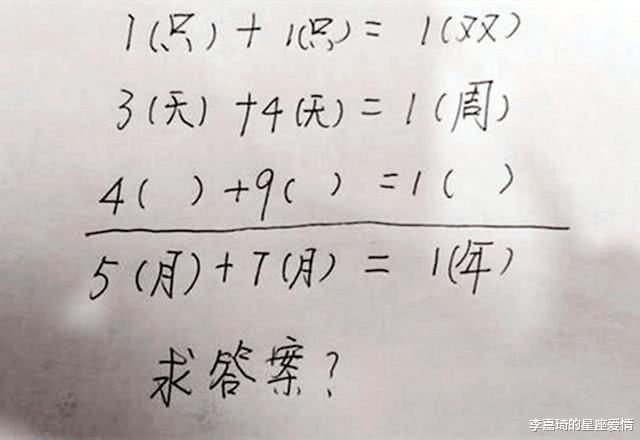 1(只)+1(只)=1(双)
3(天)+4(天)=1(周)
4( )+9( )=1( )
5(月)+7(月)=1(年)
求答案?
李嘉琦的星座爱情